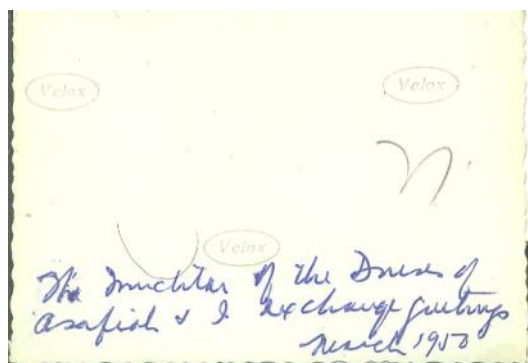 Velox
Velox
Velox
The Muchtar of the Druses of
Asafiah & I exchange greetings
March 1950